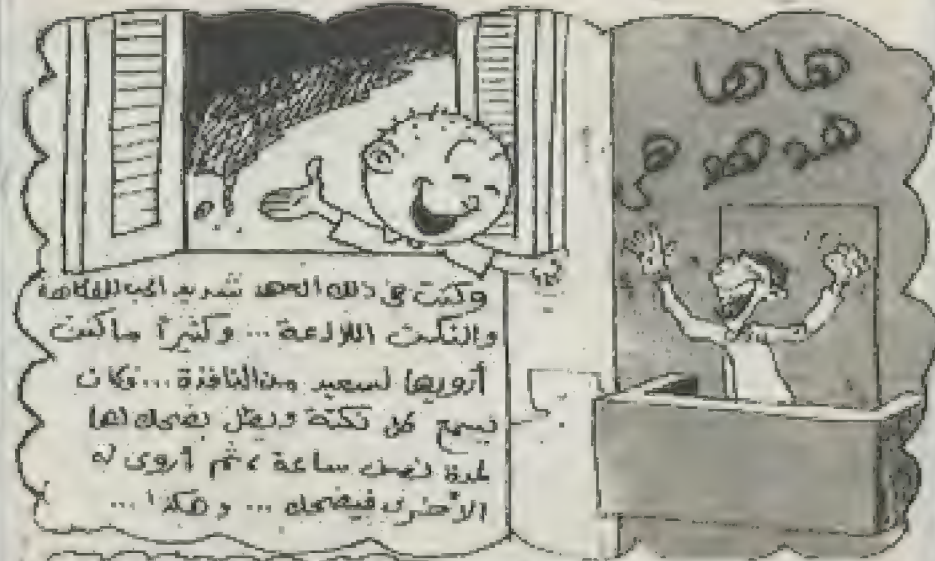 ها ها
هه هه هى
وكنت فى ذلك العهد شديد الحب للفكاهة
والنكت اللاذعة ... وكثيراً ما كنت
أرويها لسعيد من النافذة ... فكان
يسمع كل نكتة ويظل يضحك لها
لمدة نصف ساعة ، ثم أروى له
الأخرى فيضحك ... وهكذا ...